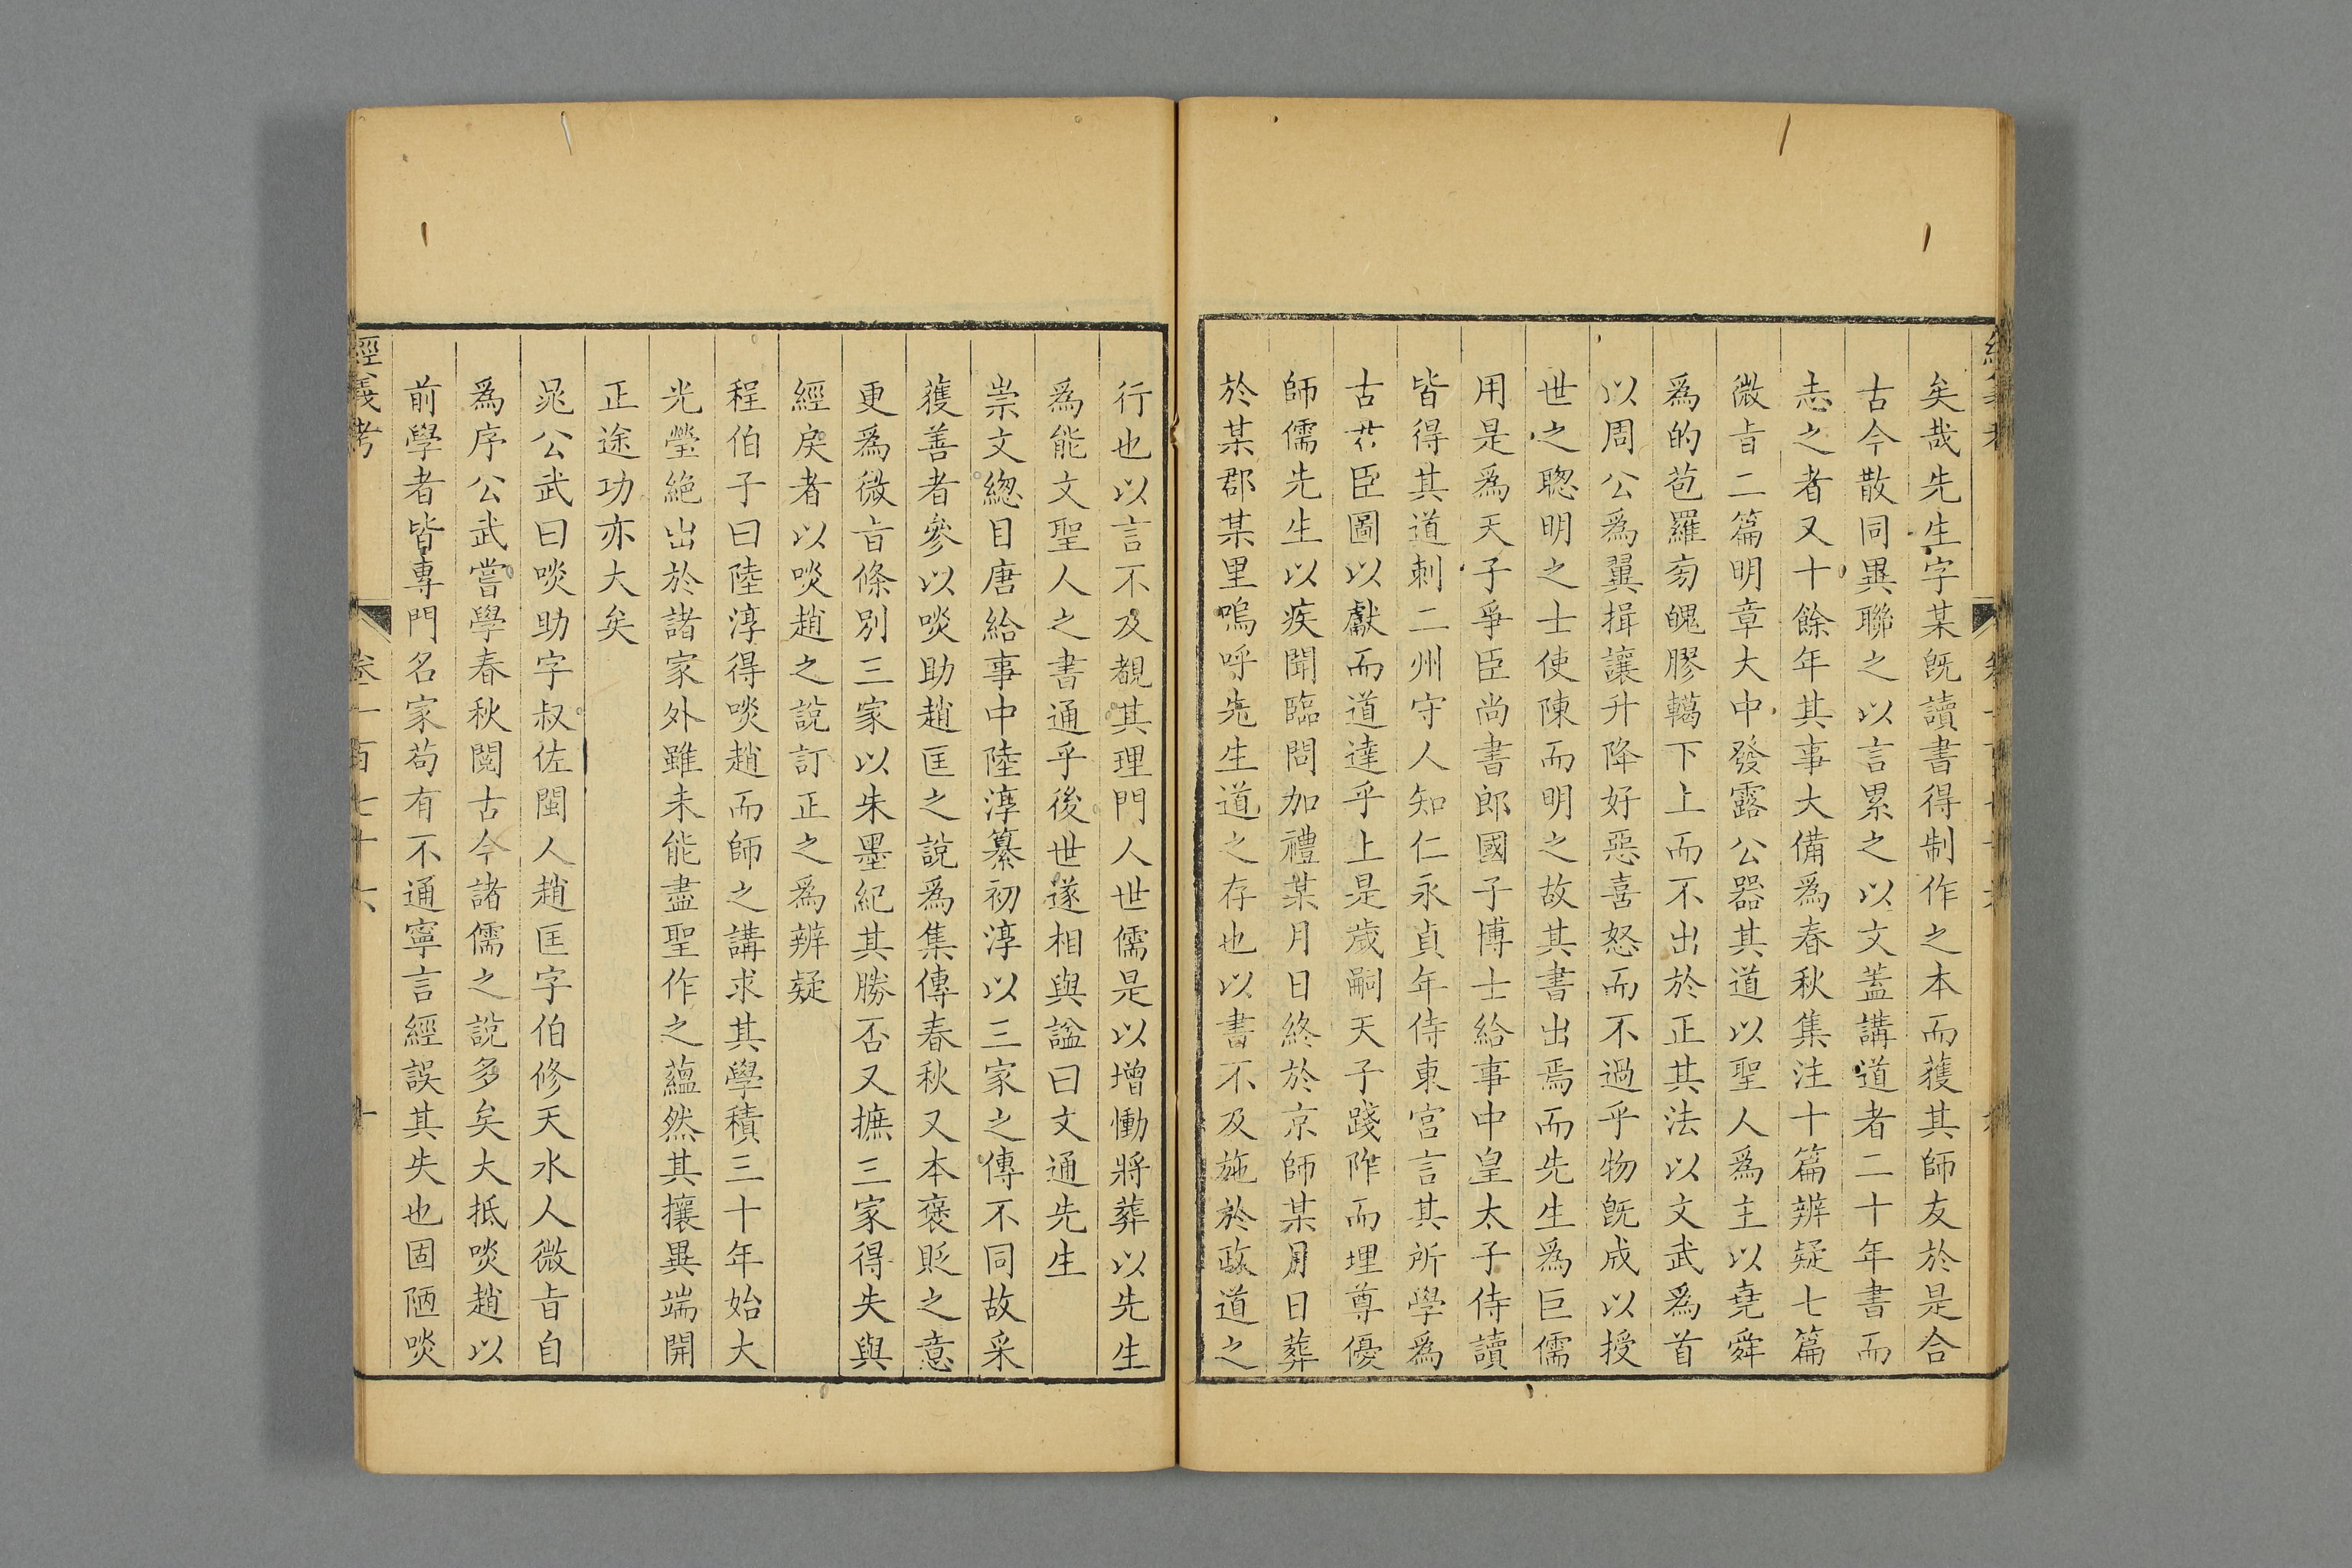 矣哉先生字某旣讀書得制作之本而獲其師友於是合
古今散同異聯之以言累之以文蓋講道者二十年書而
志之者又十餘年其事大備爲春秋集注十篇辨疑七篇
微旨二篇明章大中發露公器其道以聖人爲主以堯舜
爲的苞羅旁魄膠轕下上而不出於正其法以文武爲首
以周公爲翼揖讓升降好惡喜怒而不過乎物旣成以授
世之聦明之士使陳而明之故其書出焉而先生爲巨儒
用是爲天子爭臣尚書郎國子博士給事中皇太子侍讀
皆得其道刺二州守人知仁永貞年侍東宮言其所學爲
古君臣圖以獻而道達乎上是歲嗣天子踐阼而理尊優
師儒先生以疾聞臨問加禮某月日終於京師某月日葬
於某郡某里嗚呼先生道之存也以書不及施於政道之
行也以言不及覩其理門人世儒是以增慟將葬以先生
爲能文聖人之書通乎後世遂相與諡曰文通先生
崇文緫目唐給事中陸淳纂初淳以三家之傳不同故采
獲善者參以啖助趙匡之說爲集傳春秋又本褒貶之意
更爲微旨條別三家以朱墨紀其勝否又摭三家得失與
經戾者以啖趙之說訂正之爲辨疑
程伯子曰陸淳得啖趙而師之講求其學積三十年始大
光瑩絕出於諸家外雖未能盡聖作之蘊然其攘異端開
正途功亦大矣
晁公武曰啖助字叔佐閩人趙匡字伯修天水人微旨自
爲序公武嘗學春秋閱古今諸儒之說多矣大抵啖趙以
前學者皆專門名家苟有不通寧言經誤其失也固陋啖
經義考 卷一百七十六 十